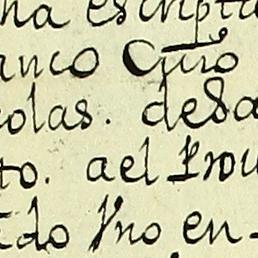 na escriptu
anco Cyro
colas. desa
to. ael Prou
do Vno en